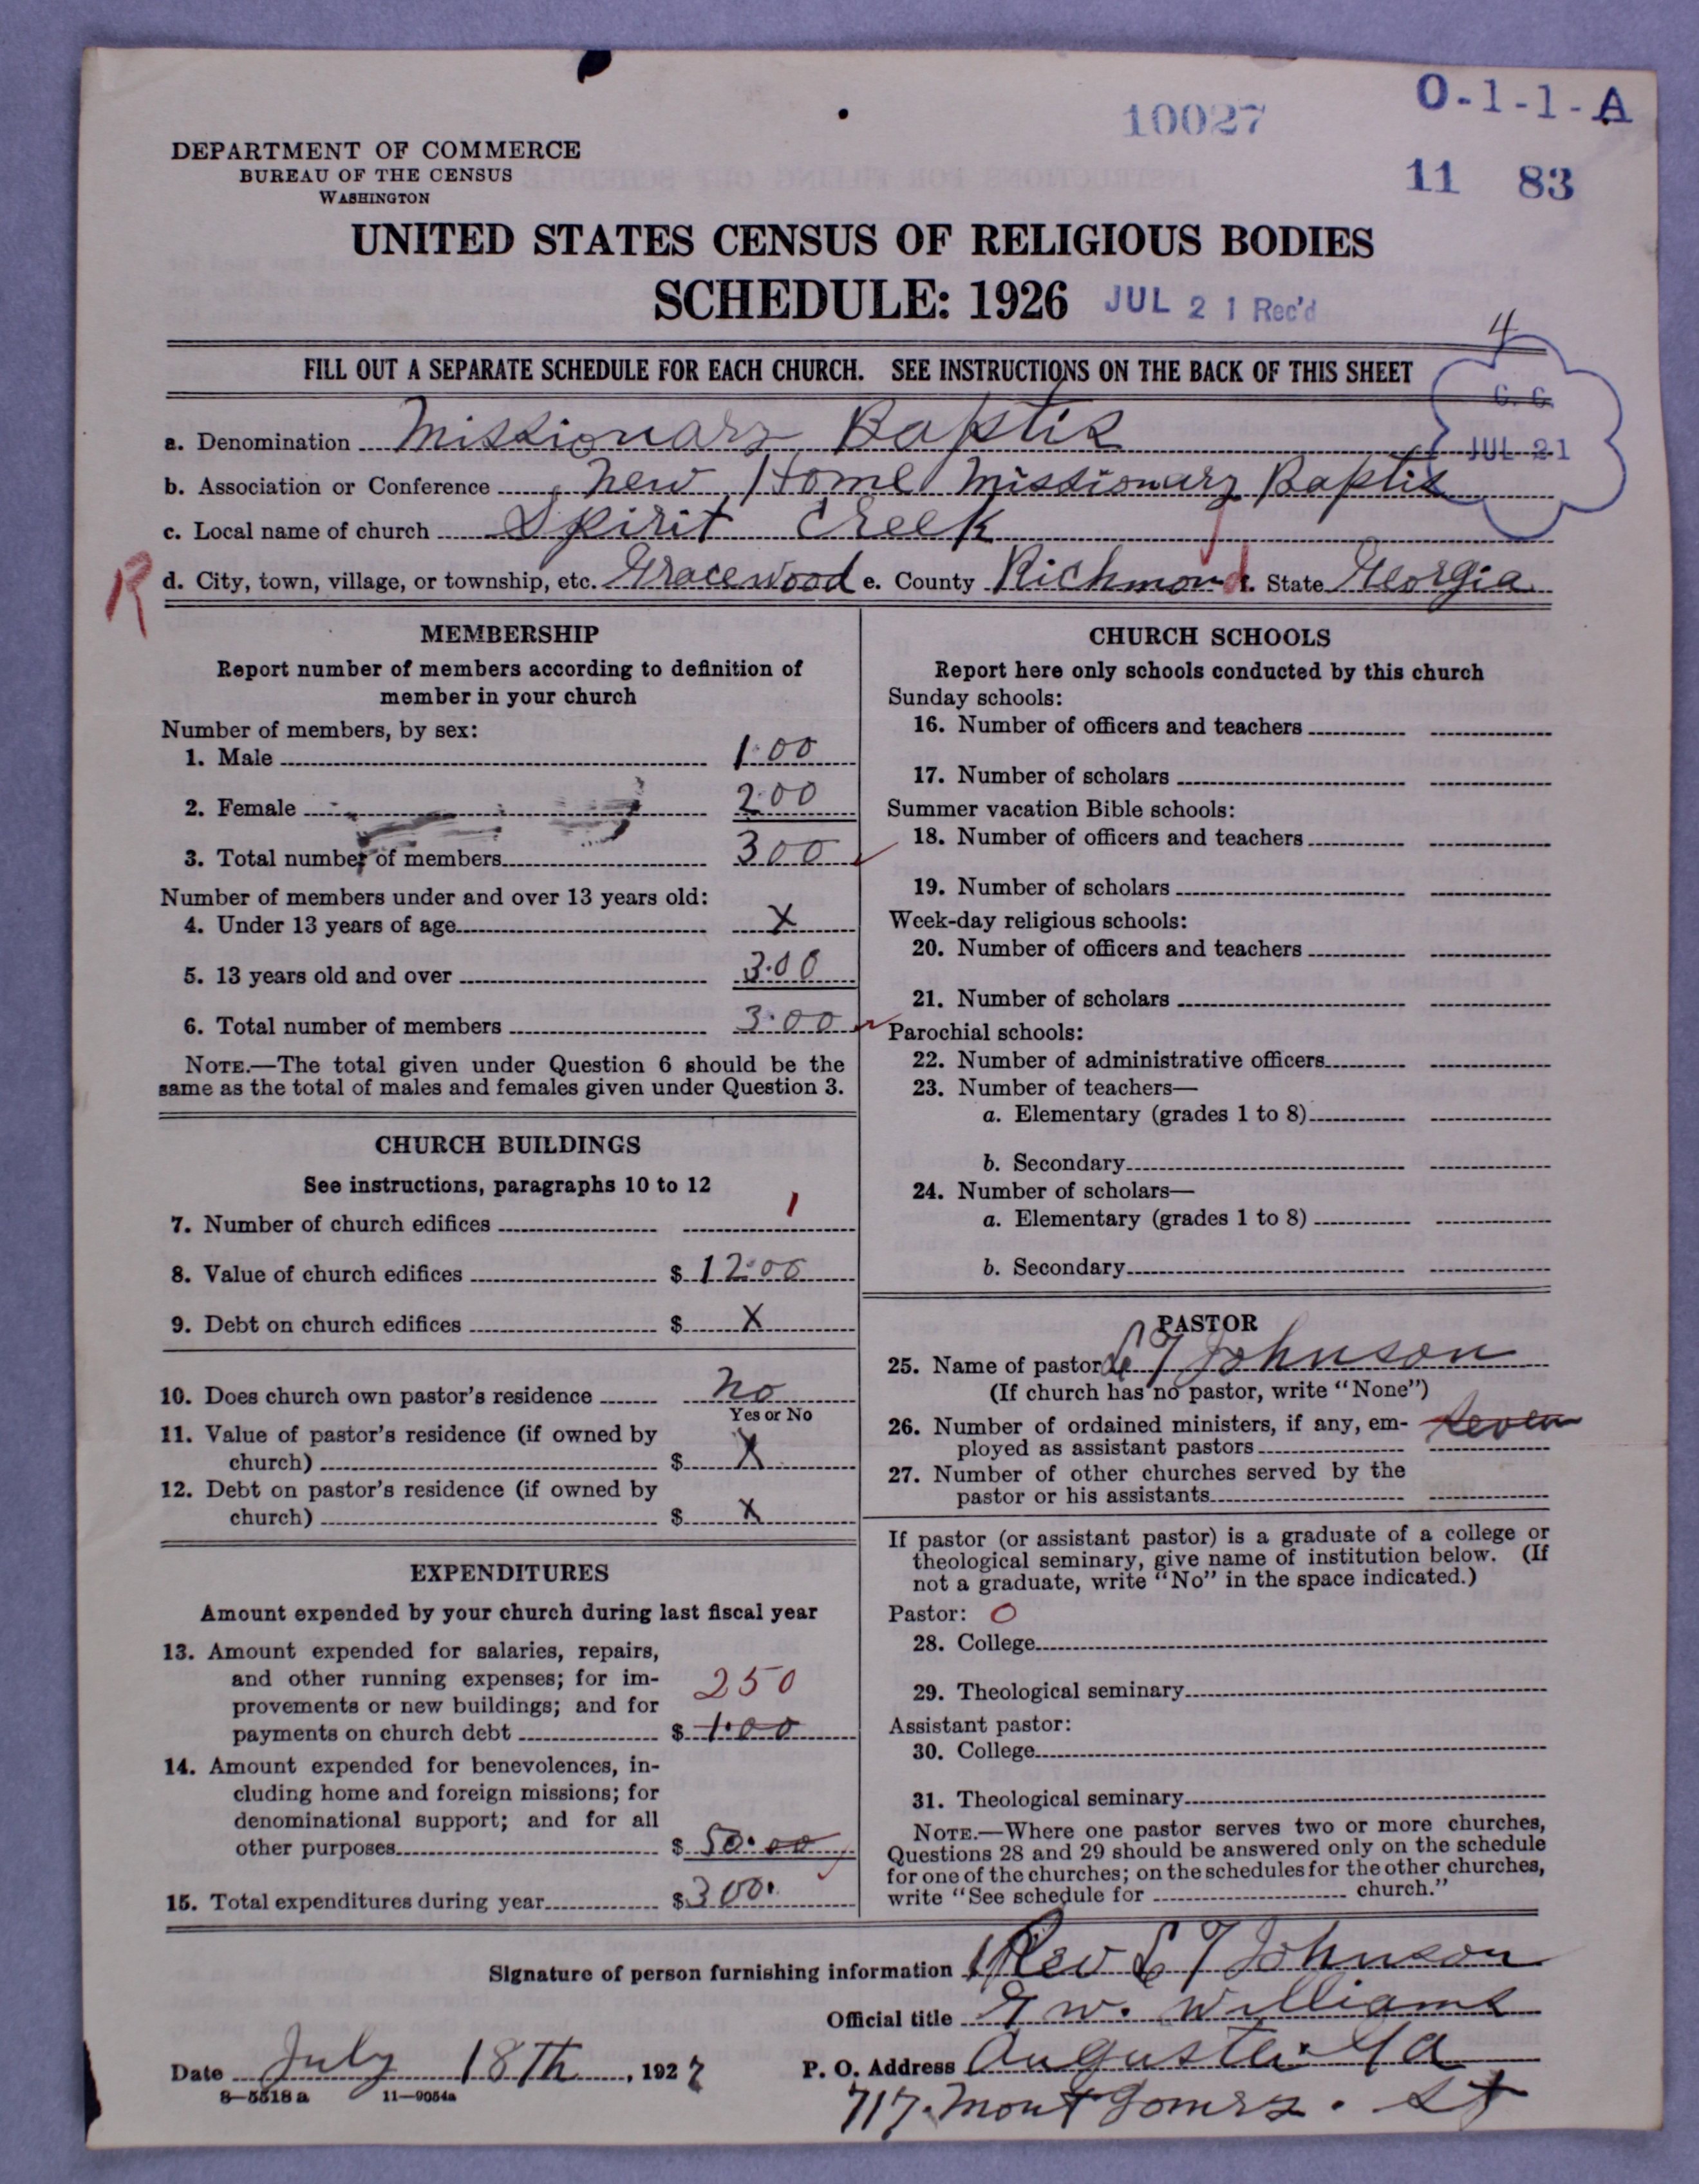 10027
O-1-1-A
11 83
DEPARTMENT OF COMMERCE
BUREAU OF THE CENSUS
WASHINGTON
UNITED STATES CENSUS OF RELIGIOUS BODIES
SCHEDULE: 1926 JUL 21 Rec'd
4
FILL OUT A SEPARATE SCHEDULE FOR EACH CHURCH. SEE INSTRUCTIONS ON THE BACK OF THIS SHEET
JUL 21
a. Denomination Missionary Baptis
b. Association or Conference New Home Missionary Baptis
c. Local name of church Spirit Creek
R d. City, town, village, or township, etc. Gracewood e. County Richmond f. State Georgia
MEMBERSHIP
Report number of members according to definition of
member in your church
Number of members, by sex:
1. Male 1.00
2. Female 2.00
3. Total number of members 300
Number of members under and over 13 years old:
4. Under 13 years of age X
5. 13 years old and over 3.00
6. Total number of members 3.00
NOTE.—The total given under Question 6 should be the
same as the total of males and females given under Question 3.
CHURCH BUILDINGS
See instructions, paragraphs 10 to 12
7. Number of church edifices 1
8. Value of church edifices $ 12.00
9. Debt on church edifices $ X
10. Does church own pastor's residence No
Yes or No
11. Value of pastor's residence (if owned by
church) $ X
12. Debt on pastor's residence (if owned by
church) $ X
EXPENDITURES
Amount expended by your church during last fiscal year
13. Amount expended for salaries, repairs,
and other running expenses; for im-
provements or new buildings; and for 250
payments on church debt $ 1.00
14. Amount expended for benevolences, in-
cluding home and foreign missions; for
denominational support; and for all
other purposes $ 50.00
15. Total expenditures during year $ 300.
CHURCH SCHOOLS
Report here only schools conducted by this church
Sunday schools:
16. Number of officers and teachers
17. Number of scholars
Summer vacation Bible schools:
18. Number of officers and teachers
19. Number of scholars
Week-day religious schools:
20. Number of officers and teachers
21. Number of scholars
Parochial schools:
22. Number of administrative officers
23. Number of teachers—
a. Elementary (grades 1 to 8)
b. Secondary
24. Number of scholars—
a. Elementary (grades 1 to 8)
b. Secondary
PASTOR
25. Name of pastor L T Johnson
(If church has no pastor, write "None")
26. Number of ordained ministers, if any, em- seven
ployed as assistant pastors
27. Number of other churches served by the
pastor or his assistants
If pastor (or assistant pastor) is a graduate of a college or
theological seminary, give name of institution below. (If
not a graduate, write "No" in the space indicated.)
Pastor: O
28. College
29. Theological seminary
Assistant pastor:
30. College
31. Theological seminary
NOTE.—Where one pastor serves two or more churches,
Questions 28 and 29 should be answered only on the schedule
for one of the churches; on the schedules for the other churches,
write "See schedule for church."
Signature of person furnishing information Rev L T Johnson
Official title G W. Williams
Date July 18th, 1927 P. O. Address Augusta Ga
8-5518 a 11-9054a
717. Montgomery. St